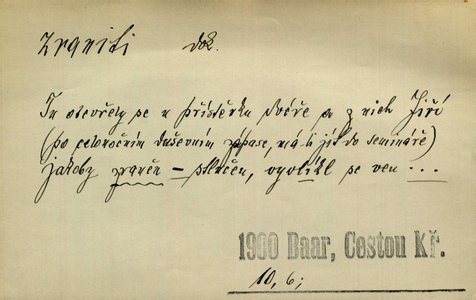 Zraniti dok.
Tu otevřely se u přístěnku dvéře a z nich Jiří
(po celonočním duševním zápase, má-li jít do semináře)
jakoby zraněn – skrčen, vyplížil se ven ...
1900 Baar, Cestou Kř.
10, 6;